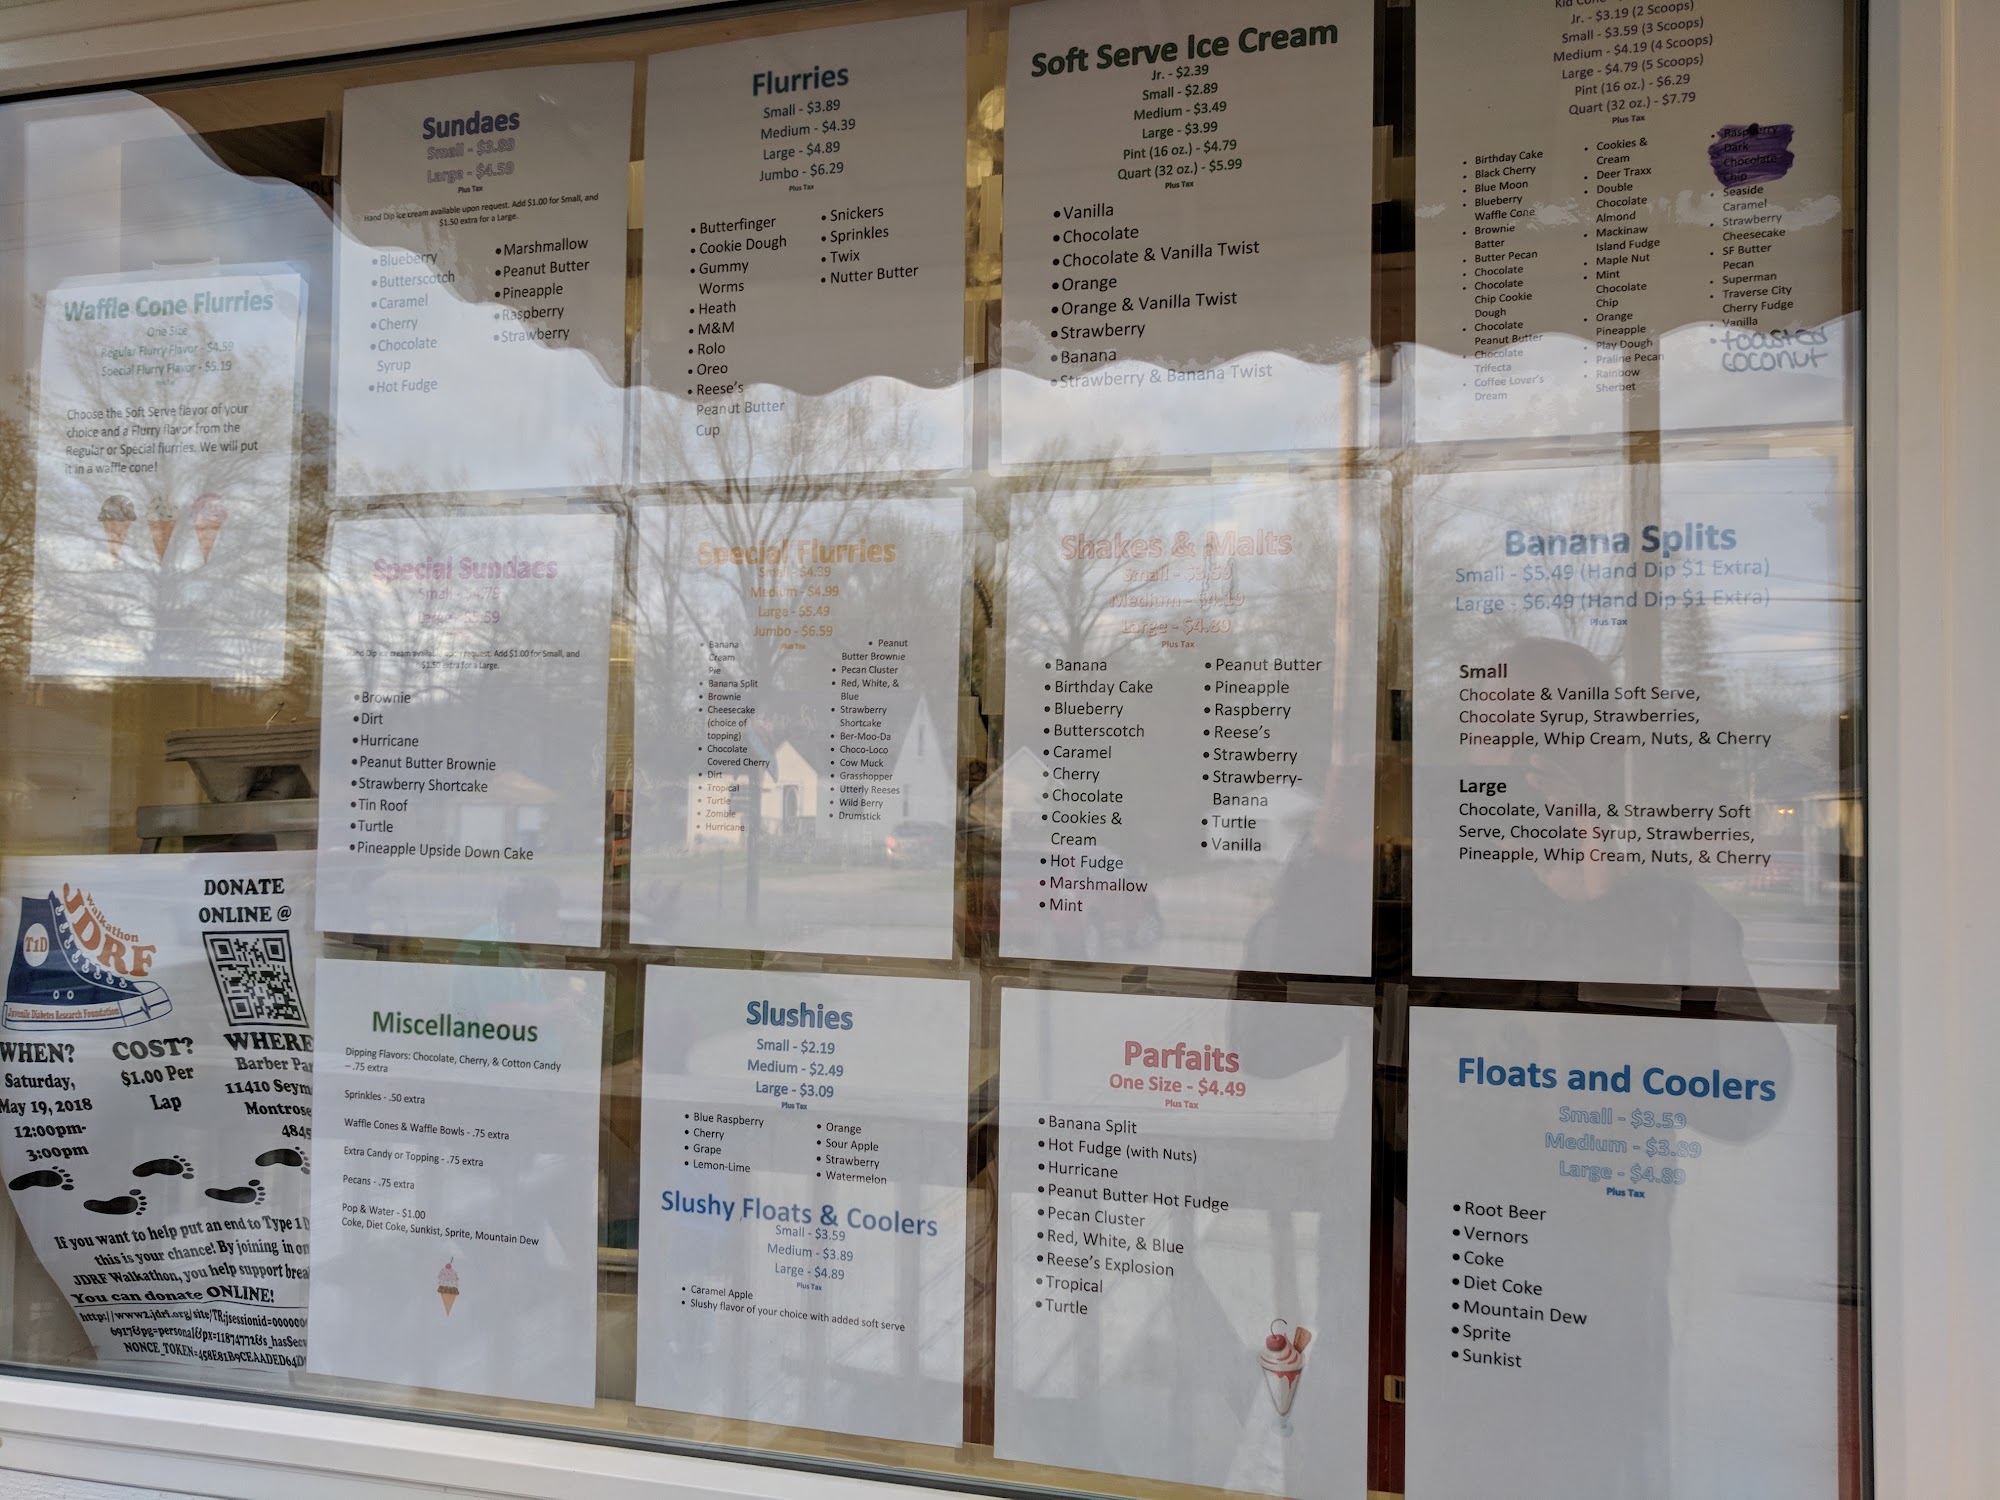 Waffle Cone Flurries
One Size
Regular Flurry Flavor - $4.59
Special Flurry Flavor - $5.19
Choose the Soft Serve flavor of your
choice and a Flurry flavor from the
Regular or Special flurries. We will put
it in a waffle cone!
Sundaes
Small - $3.89
Large - $4.59
Plus Tax
Hand Dip ice cream available upon request. Add $1.00 for Small, and
$1.50 extra for a Large.
• Blueberry
• Butterscotch
• Caramel
• Cherry
• Chocolate
Syrup
• Hot Fudge
• Marshmallow
• Peanut Butter
• Pineapple
• Raspberry
• Strawberry
Flurries
Small - $3.89
Medium - $4.39
Large - $4.89
Jumbo - $6.29
Plus Tax
• Butterfinger
• Cookie Dough
• Gummy
Worms
• Heath
• M&M
• Rolo
• Oreo
• Reese's
Peanut Butter
Cup
• Snickers
• Sprinkles
• Twix
• Nutter Butter
Soft Serve Ice Cream
Jr. - $2.39
Small - $2.89
Medium - $3.49
Large - $3.99
Pint (16 oz.) - $4.79
Quart (32 oz.) - $5.99
Plus Tax
• Vanilla
• Chocolate
• Chocolate & Vanilla Twist
• Orange
• Orange & Vanilla Twist
• Strawberry
• Banana
• Strawberry & Banana Twist
Jr. - $3.19 (2 Scoops)
Small - $3.59 (3 Scoops)
Medium - $4.19 (4 Scoops)
Large - $4.79 (5 Scoops)
Pint (16 oz.) - $6.29
Quart (32 oz.) - $7.79
Plus Tax
• Birthday Cake
• Black Cherry
• Blue Moon
• Blueberry
Waffle Cone
• Brownie
Batter
• Butter Pecan
• Chocolate
• Chocolate
Chip Cookie
Dough
• Chocolate
Peanut Butter
• Chocolate
Trifecta
• Coffee Lover's
Dream
• Cookies &
Cream
• Deer Traxx
• Double
Chocolate
Almond
• Mackinaw
Island Fudge
• Maple Nut
• Mint
Chocolate
Chip
• Orange
Pineapple
• Play Dough
• Praline Pecan
• Rainbow
Sherbet
• Raspberry
Dark
Chocolate
Chip
• Seaside
Caramel
• Strawberry
Cheesecake
• SF Butter
Pecan
• Superman
• Traverse City
Cherry Fudge
• Vanilla
• toasted
coconut
Special Sundaes
Hand Dip ice cream available upon request. Add $1.00 for Small, and
$1.50 extra for a Large.
• Brownie
• Dirt
• Hurricane
• Peanut Butter Brownie
• Strawberry Shortcake
• Tin Roof
• Turtle
• Pineapple Upside Down Cake
Special Flurries
Small - $4.39
Medium - $4.99
Large - $5.49
Jumbo - $6.59
Plus Tax
• Banana
Cream
Pie
• Banana Split
• Brownie
• Cheesecake
(choice of
topping)
• Chocolate
Covered Cherry
• Dirt
• Tropical
• Turtle
• Zombie
• Hurricane
• Peanut
Butter Brownie
• Pecan Cluster
• Red, White, &
Blue
• Strawberry
Shortcake
• Ber-Moo-Da
• Choco-Loco
• Cow Muck
• Grasshopper
• Utterly Reeses
• Wild Berry
• Drumstick
Shakes & Malts
Small -
Medium - $4.19
Large - $4.89
Plus Tax
• Banana
• Birthday Cake
• Blueberry
• Butterscotch
• Caramel
• Cherry
• Chocolate
• Cookies &
Cream
• Hot Fudge
• Marshmallow
• Mint
• Peanut Butter
• Pineapple
• Raspberry
• Reese's
• Strawberry
• Strawberry-
Banana
• Turtle
• Vanilla
Banana Splits
Small - $5.49 (Hand Dip $1 Extra)
Large - $6.49 (Hand Dip $1 Extra)
Plus Tax
Small
Chocolate & Vanilla Soft Serve,
Chocolate Syrup, Strawberries,
Pineapple, Whip Cream, Nuts, & Cherry
Large
Chocolate, Vanilla, & Strawberry Soft
Serve, Chocolate Syrup, Strawberries,
Pineapple, Whip Cream, Nuts, & Cherry
Walkathon
JDRF
T1D
Juvenile Diabetes Research Foundation
DONATE
ONLINE @
WHEN?
Saturday,
May 19, 2018
12:00pm-
3:00pm
COST?
$1.00 Per
Lap
WHERE
Barber Pa
11410 Seym
Montrose
4845
If you want to help put an end to Type 1 D
this is your chance! By joining in on
JDRF Walkathon, you help support brea
You can donate ONLINE!
http://www2.jdrf.org/site/TR;jsessionid=000000
6917&pg=personal&px=11874772&s_hasSec
NONCE_TOKEN=458E81B9CEAADED64D
Miscellaneous
Dipping Flavors: Chocolate, Cherry, & Cotton Candy
– .75 extra
Sprinkles - .50 extra
Waffle Cones & Waffle Bowls - .75 extra
Extra Candy or Topping - .75 extra
Pecans - .75 extra
Pop & Water - $1.00
Coke, Diet Coke, Sunkist, Sprite, Mountain Dew
Slushies
Small - $2.19
Medium - $2.49
Large - $3.09
Plus Tax
• Blue Raspberry
• Cherry
• Grape
• Lemon-Lime
• Orange
• Sour Apple
• Strawberry
• Watermelon
Slushy Floats & Coolers
Small - $3.59
Medium - $3.89
Large - $4.89
Plus Tax
• Caramel Apple
• Slushy flavor of your choice with added soft serve
Parfaits
One Size - $4.49
Plus Tax
• Banana Split
• Hot Fudge (with Nuts)
• Hurricane
• Peanut Butter Hot Fudge
• Pecan Cluster
• Red, White, & Blue
• Reese's Explosion
• Tropical
• Turtle
Floats and Coolers
Small - $3.59
Medium - $3.89
Large - $4.89
Plus Tax
• Root Beer
• Vernors
• Coke
• Diet Coke
• Mountain Dew
• Sprite
• Sunkist